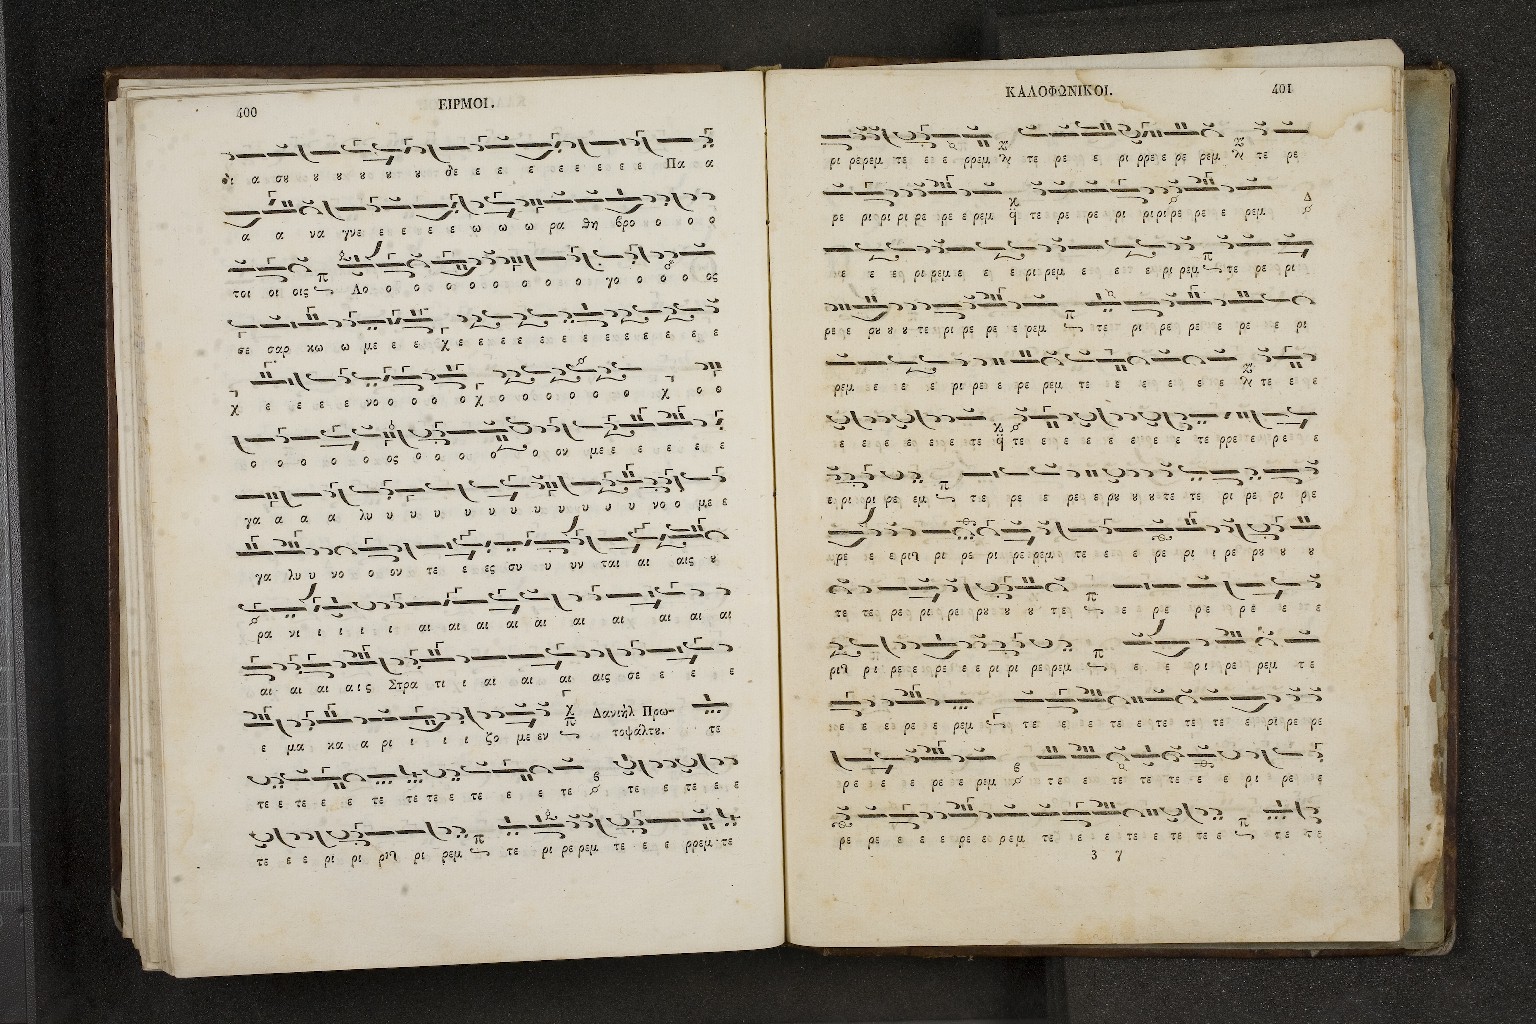 400
ΕΙΡΜΟΙ.
δι α σου ου ου ου ου ου θε ε ε ε ε ε ε ε ε Πα α
α α να γνε ε ε ε ε ω ω ω ρα θη βρο ο ο ο
τοι οι οις Λο ο ο ο ο ο ο ο ο ο γο ο ο ο ος
σε σαρ κω ω με ε ε χ ε ε ε ε ε ε ε ε ε ε ε ε
χ ε ε ε ε νο ο ο ο ο χ ο ο ο ο ο ο χ ο ο
ο ο ο ο ο ος ο ο ο ο ο ον με ε ε ε ε ε
γα α α α λυ υ υ υ υ υ υ υ υ υ υ υ νο ο με ε
γα λυ υ νο ο ον τε ε ες συ υ υν ται αι αις ου
ρα νι ι ι ι ι αι αι αι αι αι αι αι αι αι αι
αι αι αι αις Στρα τι ι αι αι αι αις σε ε ε ε
ε μα κα α ρι ι ι ι ζο με εν Δανιὴλ Πρω-
τοψάλτου. τε
τε ε τε ε ε τε τε τε ε τε ε ε τε τε ε τε ε ε
τε ε ε ρι ρι ρι ρεμ τε ρι ρε ρεμ τε ε ε ρρεμ τε
ΚΑΛΟΦΩΝΙΚΟΙ.
401
ρι ρερεμ τε ε ε ρρεμ τε ρε ε ρι ρρε ε ρε ρεμ τε ρε
ρε ρι ρι ρι ρε ρε ε ρεμ τε ρε ρε ρι ρι ρι ρε ρε ε ρεμ
ε ε ε ρι ρεμ ε ε ε ρι ρεμ ε ε ε ρι ρεμ τε ρε ρι
ρε ε ρου ου ου τε ρι ρε ρε ε ρεμ τε ρι ρε ρε ε ρε ε ρι
ρεμ ε ε ε ρι ρε ε ρε ρεμ τε ε ε ε ε ε τε ε ε
ε ε ε ε ε ε τε τε ε ε ε ε ε ε ε τε ρρε ε ρε ε
ε ρι ρι ρε εμ τε ρε ε ρε ε ρου ου ου τε τε ρι ρε ρι ρε
ρε ε ε ρι ρι ρε ρι ρε ρεμ τε ε ε ρε ρι ι ρε ρου ου ου
τε τε ρε ρι ρε ρου ου ου τε ε ρε ρε ρε ε ε
ρι ρι ρε ε ρε ε ε ρι ρι ρε ρεμ ε ε ρι ρε ρεμ τε
ε ε ε ε ρε ε ρεμ τε ε ε τε ε τε τε τε ε ρι ρε ρε
ρε ε ε ρε ε ρεμ τε ε τε τε τε ε ε ρι ρε ε
ρε ρε ε ε ε ρε ε ρεμ τε ε ε τε ε τε τε ε τε τε
3 γ